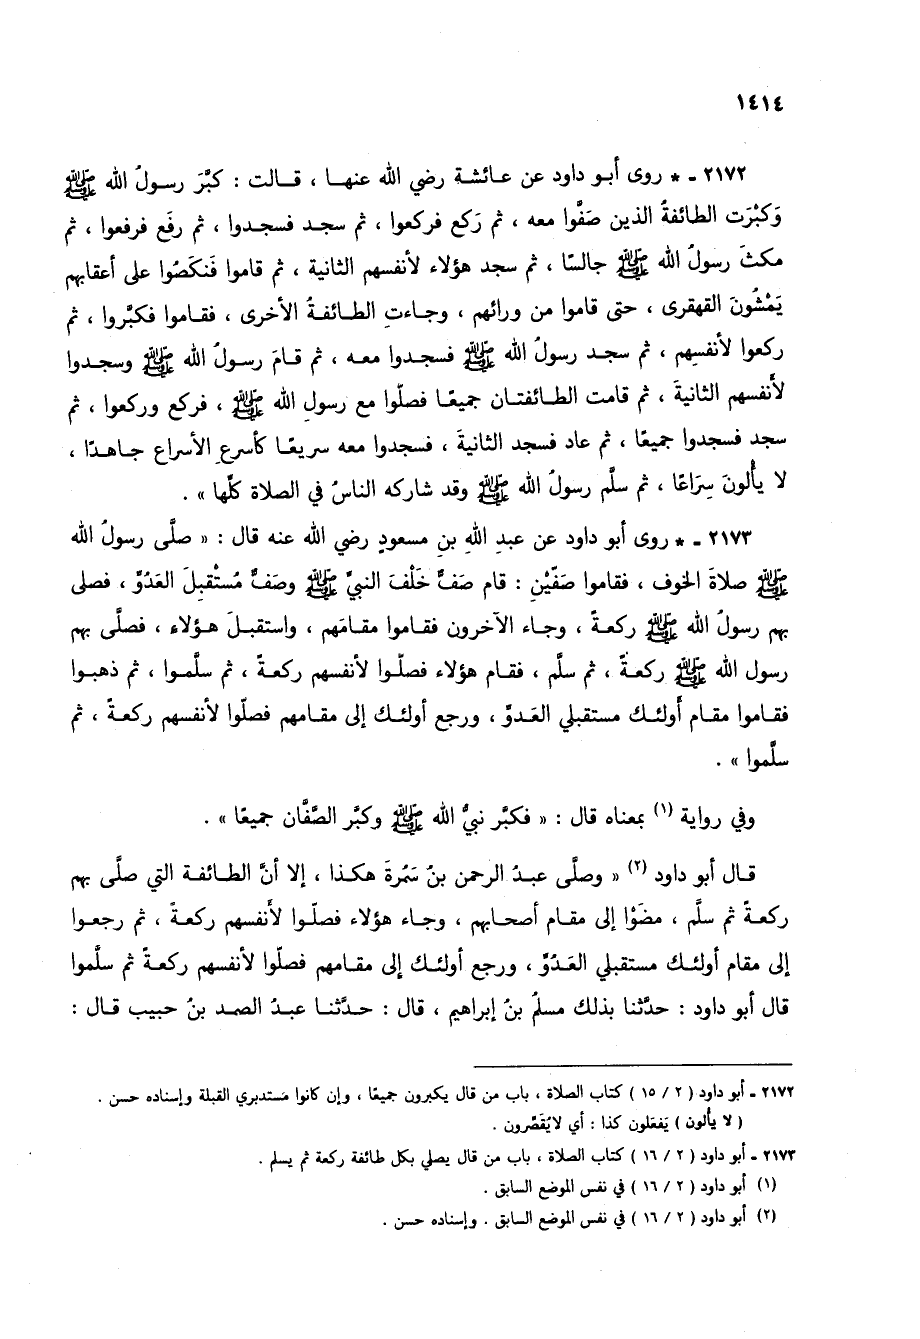 ١٤١٤
٢١٧٢ ـ * روى أبو داود عن عائشة رضي الله عنها ، قالت : كبَّرَ رسولُ الله ﷺ
وَكبَّرَت الطائفةُ الذين صَفُّوا معه ، ثم رَكع فركعوا ، ثم سجد فسجدوا ، ثم رفَع فرفعوا ، ثم
مكثَ رسولُ الله ﷺ جالسًا ، ثم سجد هؤلاء لأنفسهم الثانية ، ثم قاموا فَنكَصُوا على أعقابهم
يَمْشُونَ القهقرى ، حتى قاموا من ورائهم ، وجاءتِ الطائفةُ الأخرى ، فقاموا فكبَّروا ، ثم
ركعوا لأنفسِهم ، ثم سجد رسولُ الله ﷺ فسجدوا معه ، ثم قامَ رسولُ الله ﷺ وسجدوا
لأنفسهم الثانيةَ ، ثم قامت الطائفتان جميعًا فصلّوا مع رسولِ الله ﷺ ، فركع وركعوا ، ثم
سجد فسجدوا جميعًا ، ثم عاد فسجد الثانيةَ ، فسجدوا معه سريعًا كأسرعِ الأسراع جاهدًا ،
لا يألونَ سِرَاعًا ، ثم سلَّم رسولُ الله ﷺ وقد شاركه الناسُ في الصلاة كلّها » .
٢١٧٣ ـ * روى أبو داود عن عبدِ اللهِ بنِ مسعودٍ رضي الله عنه قال : « صلَّى رسولُ الله
ﷺ صلاةَ الخوف ، فقاموا صَفّيْنِ : قام صَفٌّ خَلْفَ النبيِّ ﷺ وصَفٌّ مُسْتَقْبِلَ العَدُوِّ ، فصلى
بهم رسولُ الله ﷺ ركعةً ، وجاء الآخرون فقاموا مقامَهم ، واستقبلَ هؤلاء ، فصلَّى بهم
رسول الله ﷺ ركعةً ، ثم سلَّم ، فقام هؤلاء فصلّوا لأنفسهم ركعةً ، ثم سلَّموا ، ثم ذهبوا
فقاموا مقام أُولئك مستقبلي العَدوِّ ، ورجع أولئك إلى مقامهم فصلّوا لأنفسهم ركعةً ، ثم
سلَّموا » .
وفي رواية (١) بمعناه قال : « فكبَّر نبيُّ الله ﷺ وكبَّر الصَّفَّان جميعًا » .
قال أبو داود (٢) « وصلَّى عبدُ الرحمن بنُ سَمُرةَ هكذا ، إلا أنَّ الطائفة التي صلَّى بهم
ركعةً ثم سلَّم ، مضَوْا إلى مقام أصحابهم ، وجاء هؤلاء فصلّوا لأنفسهم ركعةً ، ثم رجعوا
إلى مقام أولئك مستقبلي العَدُوِّ ، ورجع أولئك إلى مقامهم فصلّوا لأنفسهم ركعةً ثم سلَّموا
قال أبو داود : حدَّثنا بذلك مسلمُ بنُ إبراهيم ، قال : حدَّثنا عبدُ الصمد بنُ حبيب قال :
٢١٧٢ ـ أبو داود ( ٢ / ١٥ ) كتاب الصلاة ، باب من قال يكبرون جميعًا ، وإن كانوا مستدبري القبلة وإسناده حسن .
( لا يألون ) يَفعَلون كذا : أي لايُقَصِّرون .
٢١٧٣ ـ أبو داود ( ٢ / ١٦ ) كتاب الصلاة ، باب من قال يصلي بكل طائفة ركعة ثم يسلم .
(١) أبو داود ( ٢ / ١٦ ) في نفس الموضع السابق .
(٢) أبو داود ( ٢ / ١٦ ) في نفس الموضع السابق . وإسناده حسن .